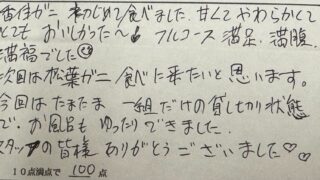 香住ガニ 初じめて食べました。甘くてやわらかくて
とてもおいしかった〜 フルコース 満足、満腹、
満福でした
次回は松葉ガニ食べに来たいと思います。
今回はたまたま 一組だけの貸しきり状態
で お風呂も ゆったりできました
スタッフの皆様 ありがとうございました♡♡
10点満点で 100点